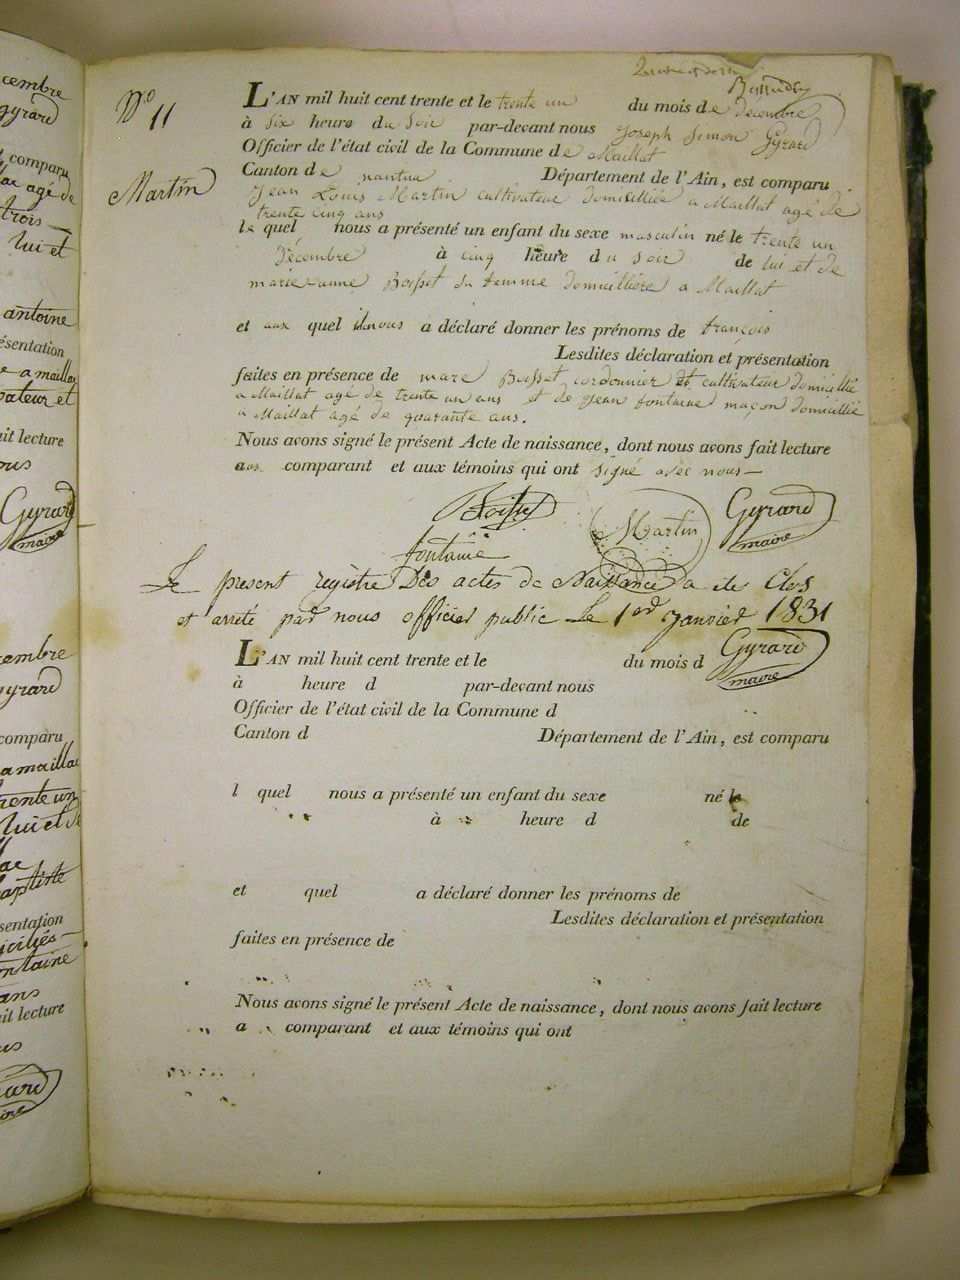 cembre
gyrard
comparu
lac agé de
trois
lui et
antoine
ésentation
e a maillac
vateur et
ait lecture
ous
Gyrard
maire
cembre
gyrard
comparu
a maillac
trente un
lui et de
ac
aptiste
sentation
iciliés
ontaine
ans
it lecture
us
maire
N.o 11
Martin
L'AN mil huit cent trente et le trente un du mois de Décembre
à Six heure du Soir par-devant nous Joseph Simon Gyrard
Officier de l'état civil de la Commune de Maillat
Canton de nantua Département de l'Ain, est comparu
Jean Louis Martin cultivateur domicilliée a Maillat agé de
trente cinq ans
le quel nous a présenté un enfant du sexe masculin né le trente un
Décembre à cinq heure du soir de lui et de
marie anne Boisset sa femme domicillière a Maillat
et aux quel il nous a déclaré donner les prénoms de françois
Lesdites déclaration et présentation
faites en présence de marc Boisset cordonnier et cultivateur domicillié
a Maillat agé de trente un ans et de Jean fontaine maçon domicillié
a Maillat agé de quarante ans.
Nous avons signé le présent Acte de naissance, dont nous avons fait lecture
aus comparant et aux témoins qui ont signé avec nous
Boisset Martin Gyrard
maire
fontaine
Le present registre Des actes de Naissance a ete Clos
et arreté par nous officier public Le 1er Janvier 1831
Gyrard
maire
L'AN mil huit cent trente et le du mois d
à heure d par-devant nous
Officier de l'état civil de la Commune d
Canton d Département de l'Ain, est comparu
l quel nous a présenté un enfant du sexe né le
à heure d de
et quel a déclaré donner les prénoms de
Lesdites déclaration et présentation
faites en présence de
Nous avons signé le présent Acte de naissance, dont nous avons fait lecture
a comparant et aux témoins qui ont